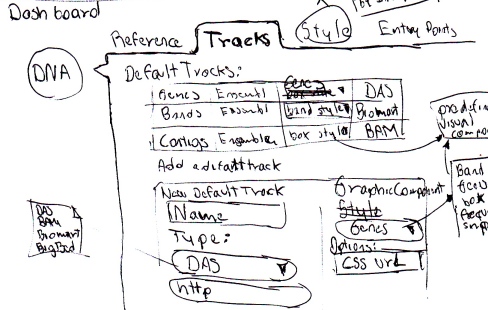 Dashboard
Reference Tracks Style Entry Points
DNA
Default Tracks:
Genes Ensembl Genes DAS
Bands Ensembl band style Biomart
Contigs Ensembl box style BAM
Add a default track
New Default Track
Name
Type:
DAS
http
Graphic Component
Style
Genes
Options:
CSS URL
DAS
BAM
Biomart
BigBed
predefin
visual
compon
Band
Genes
box
Seque
snp